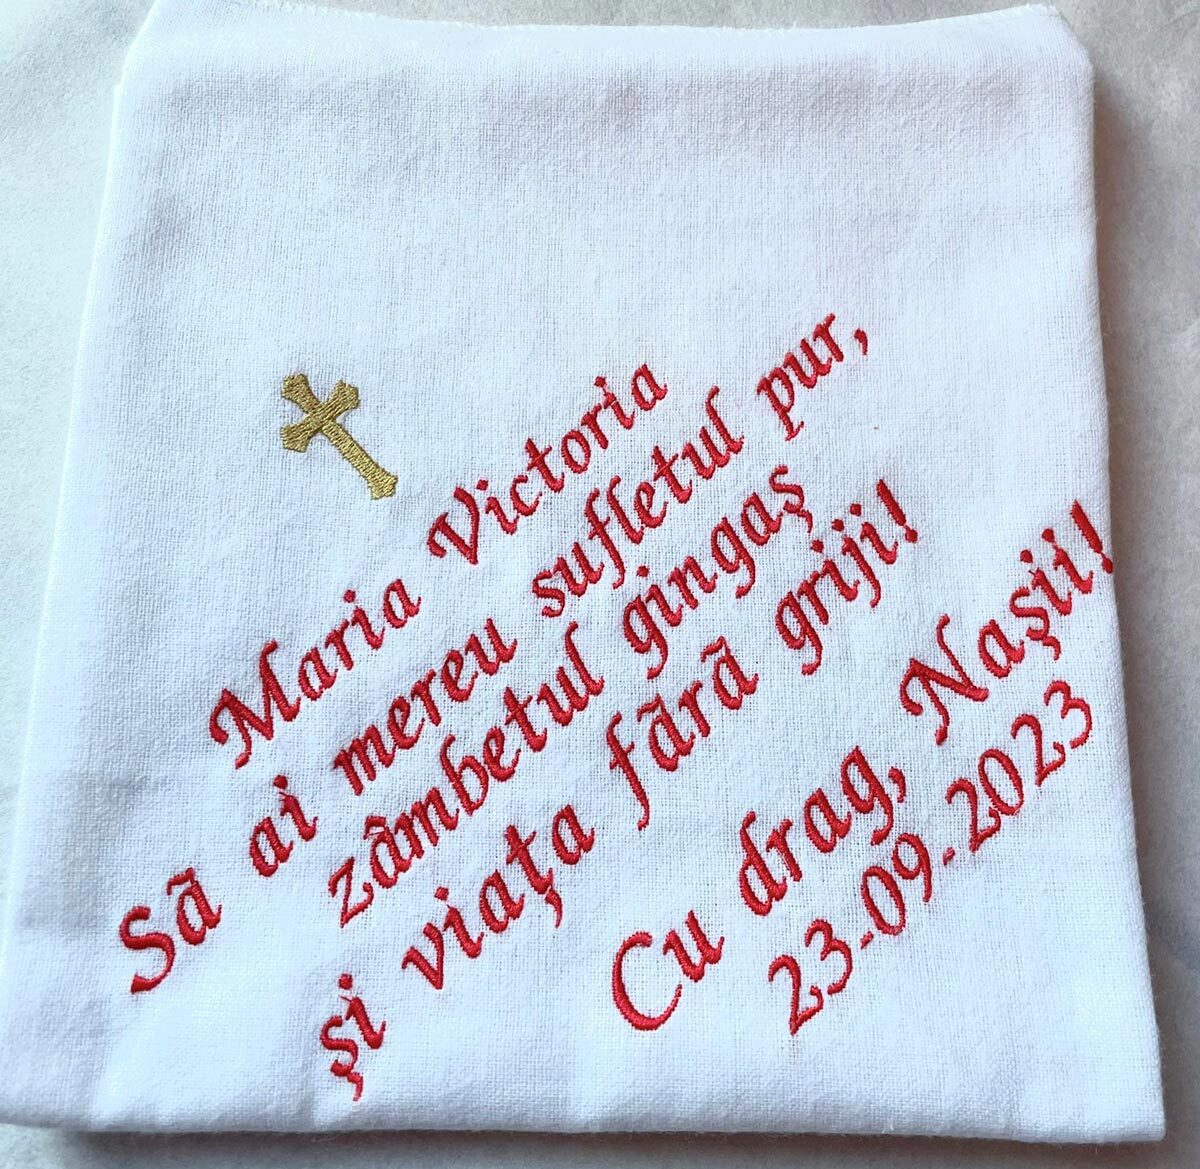 Maria Victoria
Sã ai mereu sufletul pur,
zâmbetul gingaş
şi viaţa fãrã griji!
Cu drag, Naşii!
23-09-2023